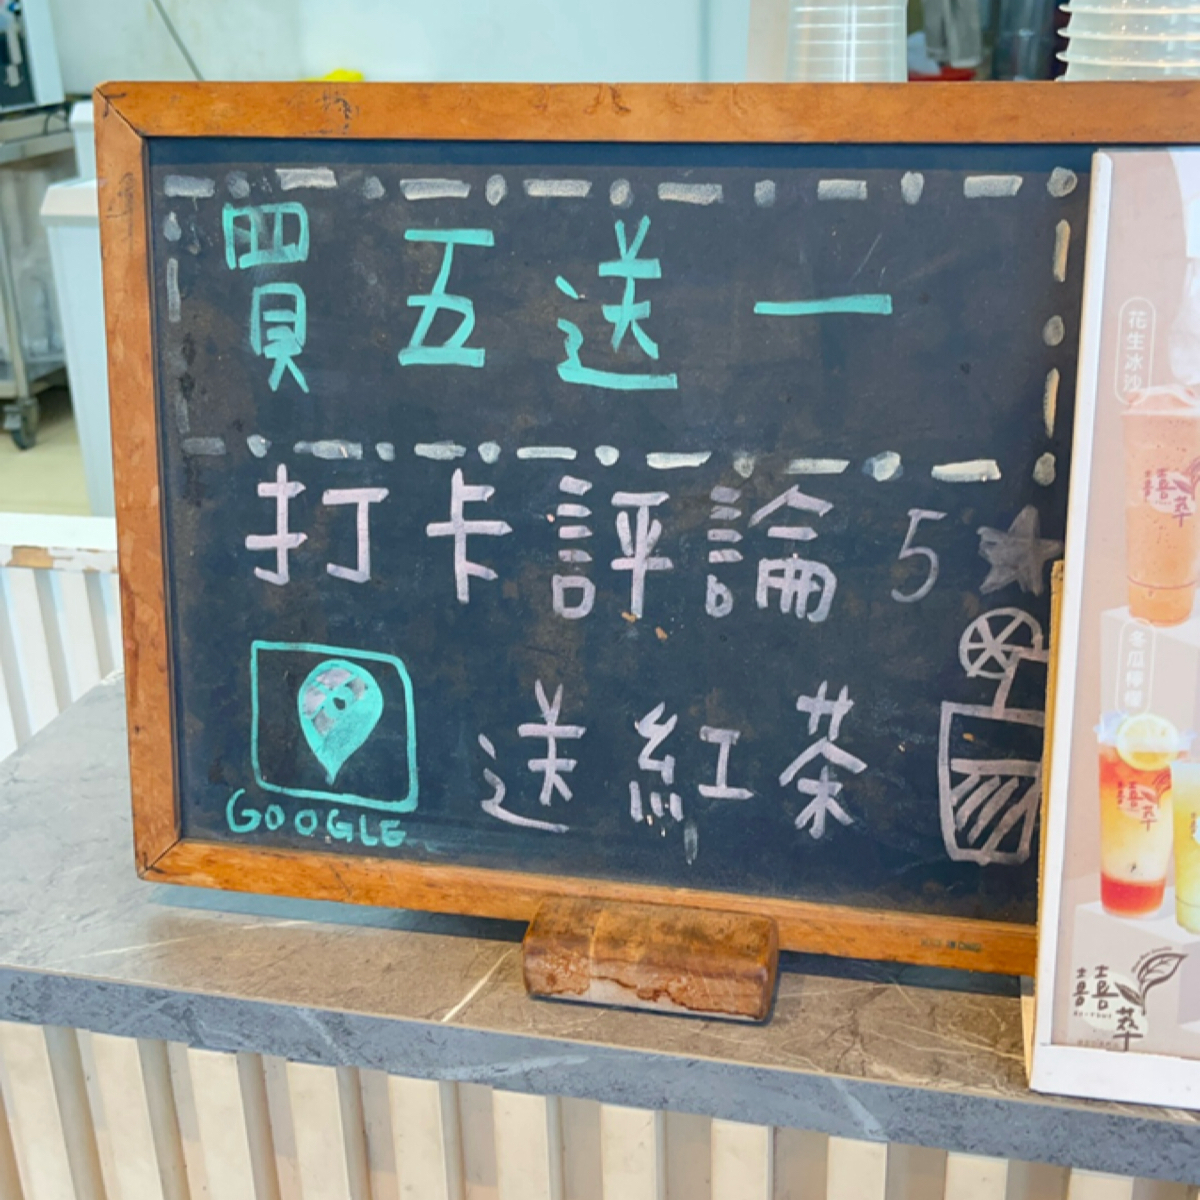 買五送一
打卡評論5★
送紅茶
GOOGLE
花生冰沙
冬瓜檸檬
囍萃